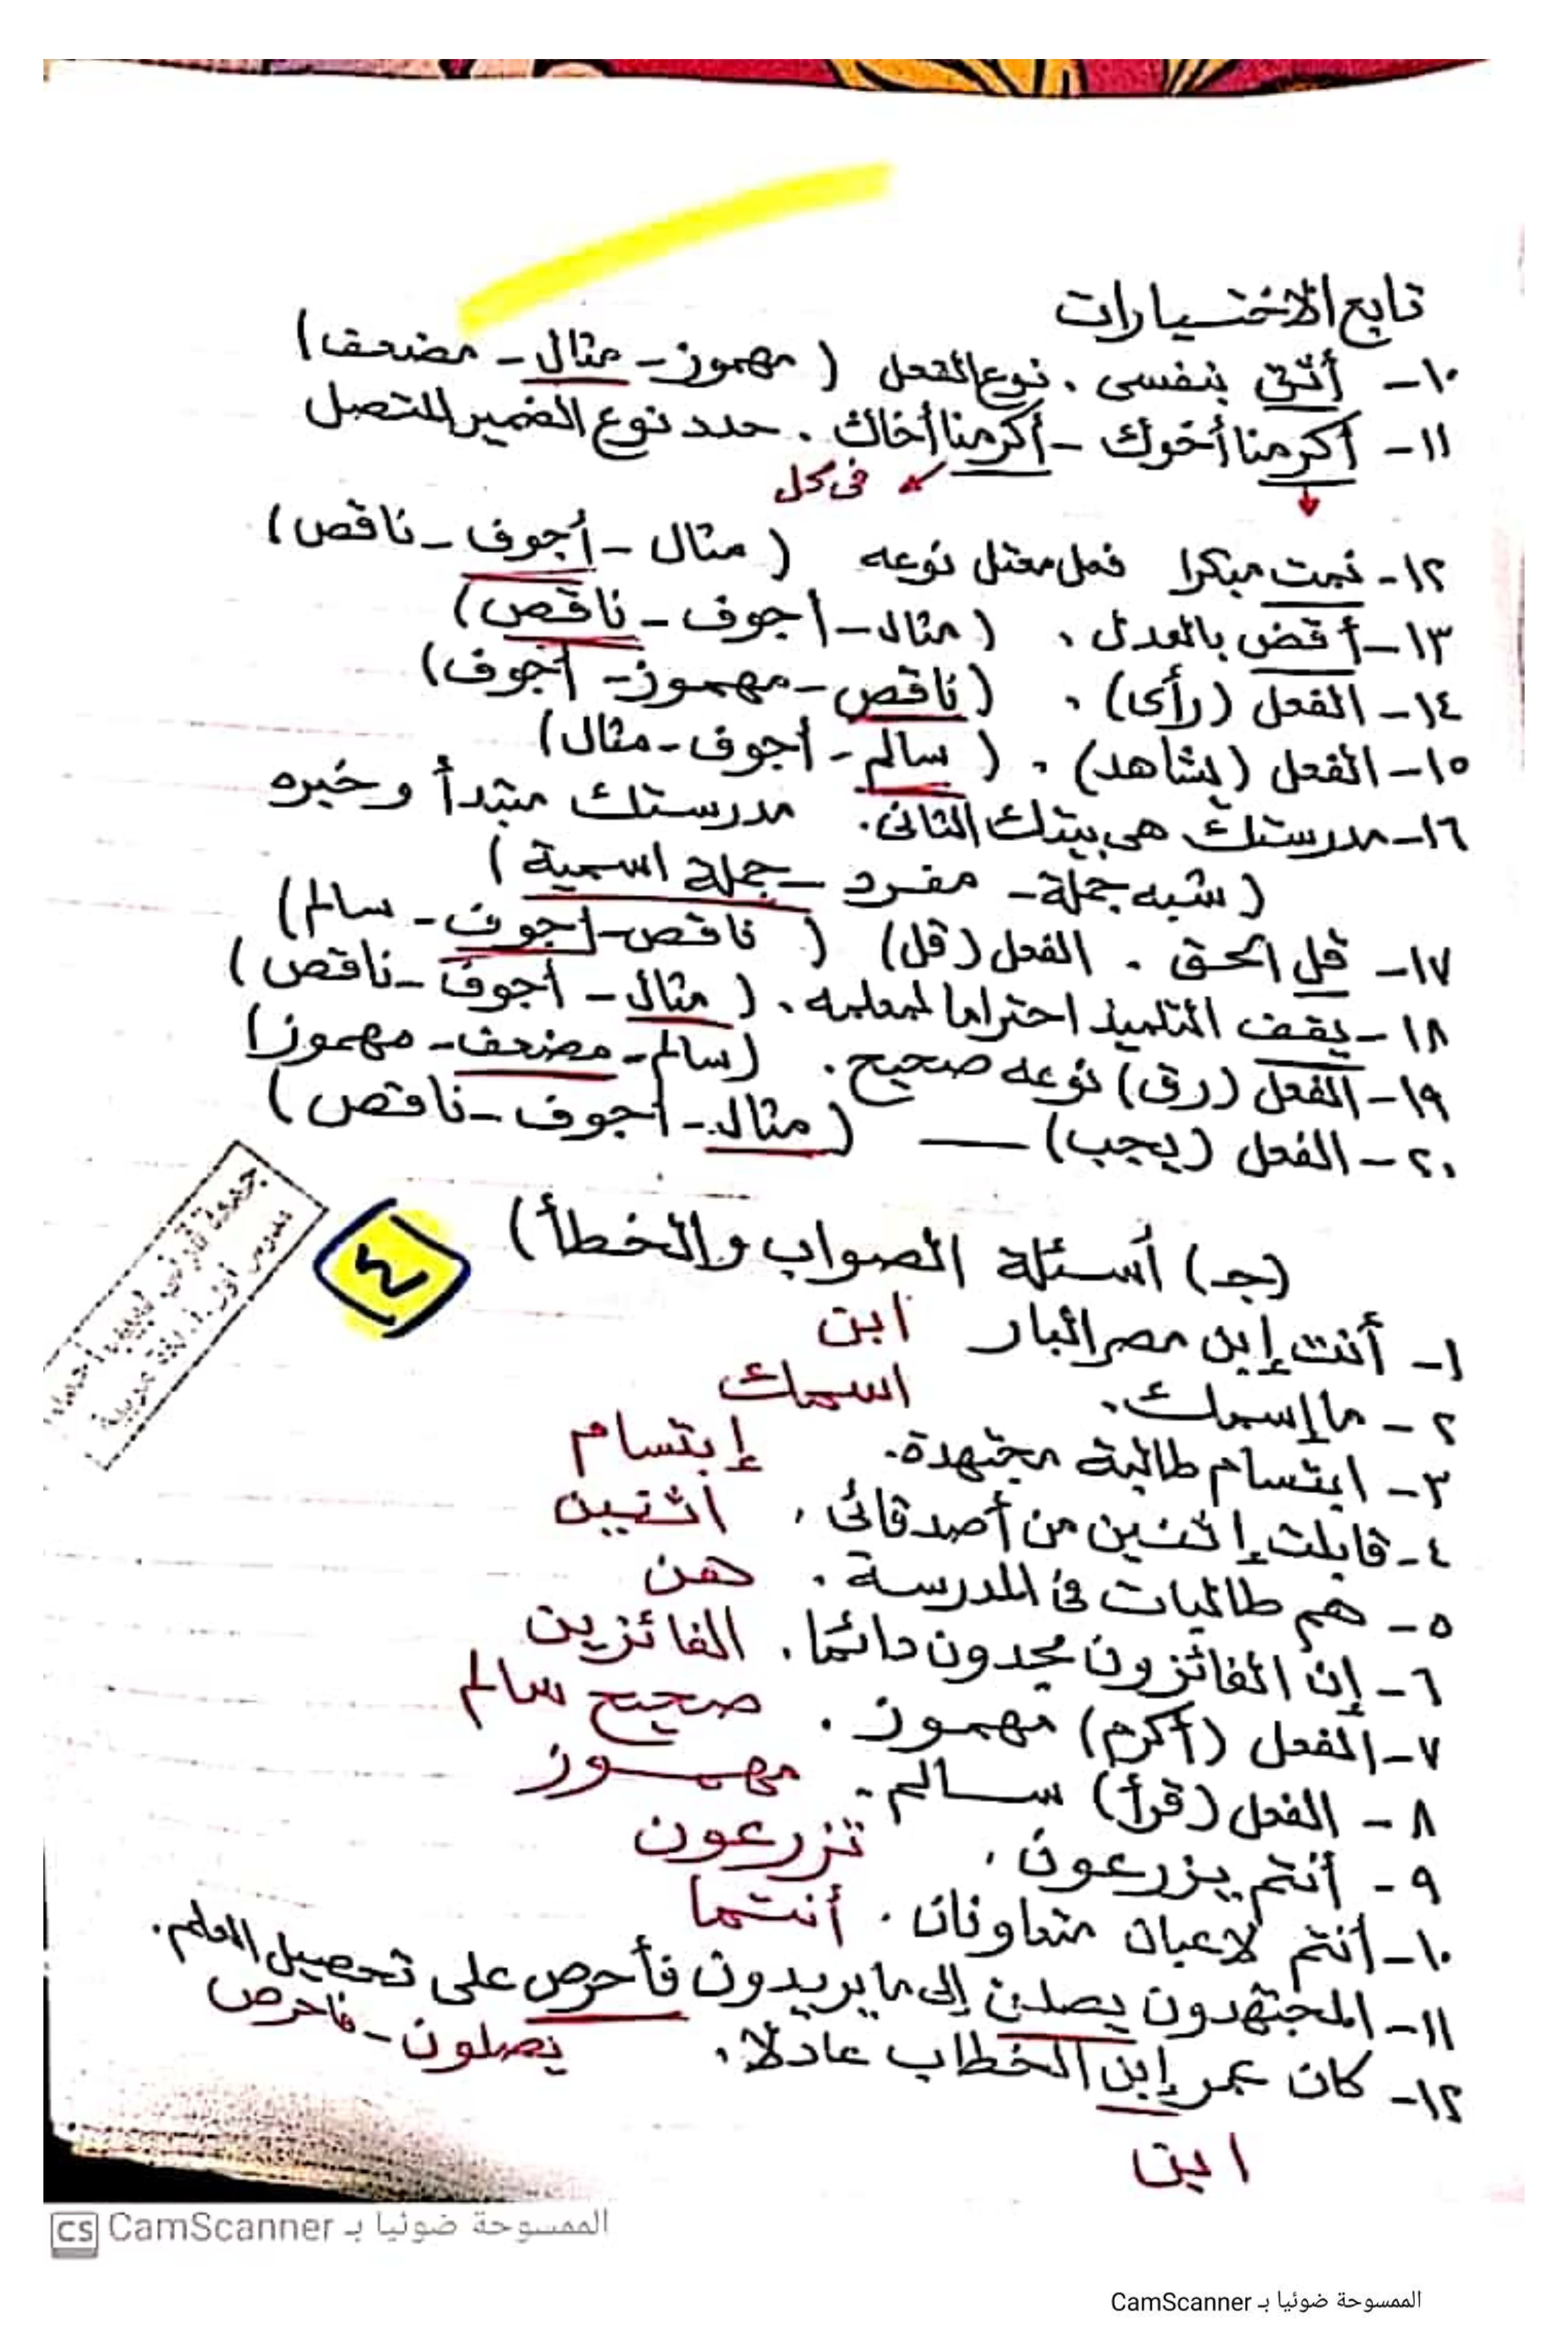 تابع الاختيارات
١٠- أثق بنفسى . نوع الفعل ( مهموز - مثال - مضعف )
١١- أكرمنا أخوك - أكرمنا أخاك . حدد نوع الضمير المتصل
فى كل
١٢- نمت مبكرا فعل معتل نوعه ( مثال - أجوف - ناقص )
١٣- أقض بالعدل . ( مثال - أجوف - ناقص )
١٤- الفعل (رأى) . ( ناقص - مهموز - أجوف )
١٥- الفعل (يشاهد) . ( سالم - أجوف - مثال )
١٦- مدرستك هى بيتك الثانى . مدرستك مبتدأ وخبره
( شبه جملة - مفرد - جملة اسمية )
١٧- قل الحق . الفعل (قل) ( ناقص - أجوف - سالم )
١٨- يقف التلميذ احتراما لمعلمه . ( مثال - أجوف - ناقص )
١٩- الفعل (رق) نوعه صحيح . ( سالم - مضعف - مهموز )
٢٠- الفعل (يجب) — ( مثال - أجوف - ناقص )
(جـ) أسئلة الصواب والخطأ )
٤
١- أنت إبن مصر البار ابن
٢- ما إسمك . اسمك
٣- ابتسام طالبة مجتهدة . إبتسام
٤- قابلت إثنين من أصدقائى . اثنين
٥- هم طالبات فى المدرسة . هن
٦- إن الفائزون يجدون دائما . الفائزين
٧- الفعل (أكرم) مهموز . صحيح سالم
٨- الفعل (قرأ) سالم . مهموز
٩- أنتم يزرعون . تزرعون
١٠- أنتم لاعبان متعاونان . أنتما
١١- المجتهدون يصلن إلى ما يريدون فأحرص على تحصيل العلم .
يصلون - فاحرص
١٢- كان عمر إبن الخطاب عادلا .
ابن
الممسوحة ضوئيا بـ CamScanner
الممسوحة ضوئيا بـ CamScanner